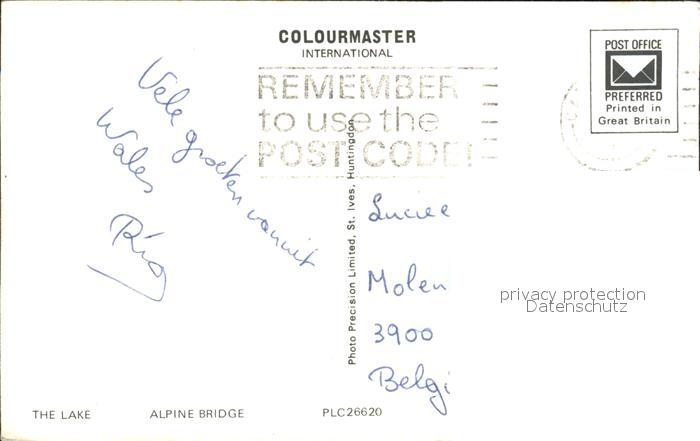 COLOURMASTER
INTERNATIONAL
POST OFFICE
PREFERRED
Printed in
Great Britain
REMEMBER
to use the
POST CODE!
Vele groeten vanuit
Wales
Photo Precision Limited, St. Ives, Huntingdon
Luciee
Molen
3900
Belgi
privacy protection
Datenschutz
THE LAKE ALPINE BRIDGE PLC26620